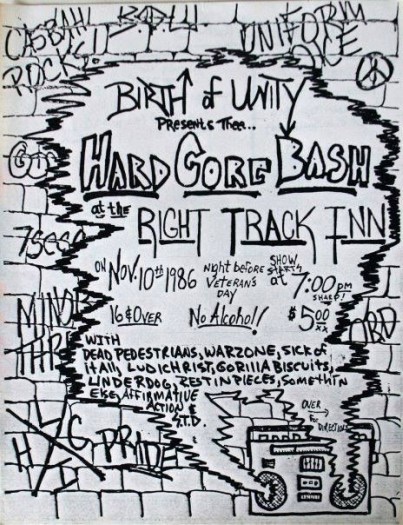 CASBAH
ROCKS!!
UNIFORM
BIRTH of UNITY
Presents Thee...
HARD CORE BASH
at the
RIGHT TRACK INN
ON NOV. 10th 1986
Night before
VETERAN'S
DAY
SHOW
STARTS
at 7:00 pm
SHARP!
16 & OVER
No Alcohol!
$5.00
xx
7 Seco
MINOR
THR
WITH
DEAD PEDESTRIANS, WARZONE, SICK of
it All, LUDICHRIST, GORILLA BISCUITS,
UNDERDOG, REST IN PIECES, SOMETHIN
ELSE, AFFIRMATIVE
ACTION &
PRIDE
OVER
DIRECTIONS